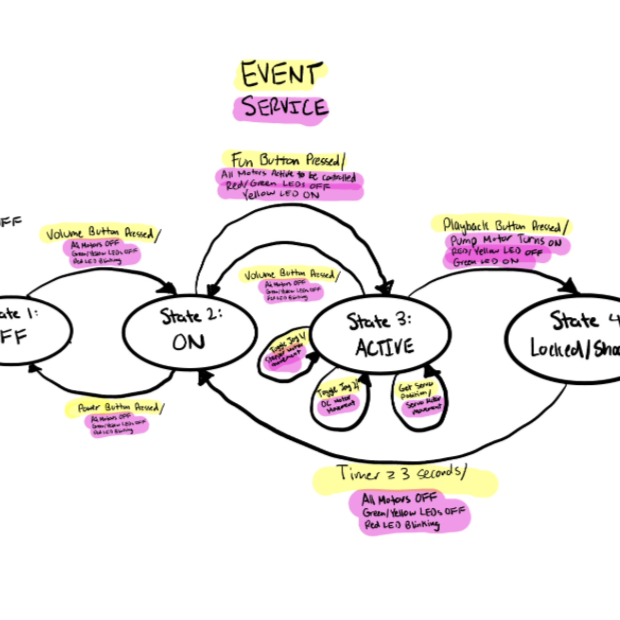 EVENT
SERVICE
Fun Button Pressed/
All Motors Active to be controlled
Red/Green LEDs OFF
Yellow LED ON
FF
Volume Button Pressed/
All Motors OFF
Green/Yellow LEDs OFF
Red LED Blinking
Playback Button Pressed/
Pump Motor Turns ON
RED/Yellow LED OFF
Green LED ON
Volume Button Pressed/
All Motors OFF
Green/Yellow LEDs OFF
Red LED Blinking
ate 1:
FF
State 2:
ON
State 3:
ACTIVE
State 4
Locked/Shoo
Toggle Joy 1/
Stepper Motor
movement
Toggle Joy 2/
DC Motor
Movement
Get Servo
Position/
Servo Motor
Movement
Power Button Pressed/
All Motors OFF
Green/Yellow LEDs OFF
Red LED Blinking
Timer ≥ 3 seconds/
All Motors OFF
Green/Yellow LEDs OFF
Red LED Blinking